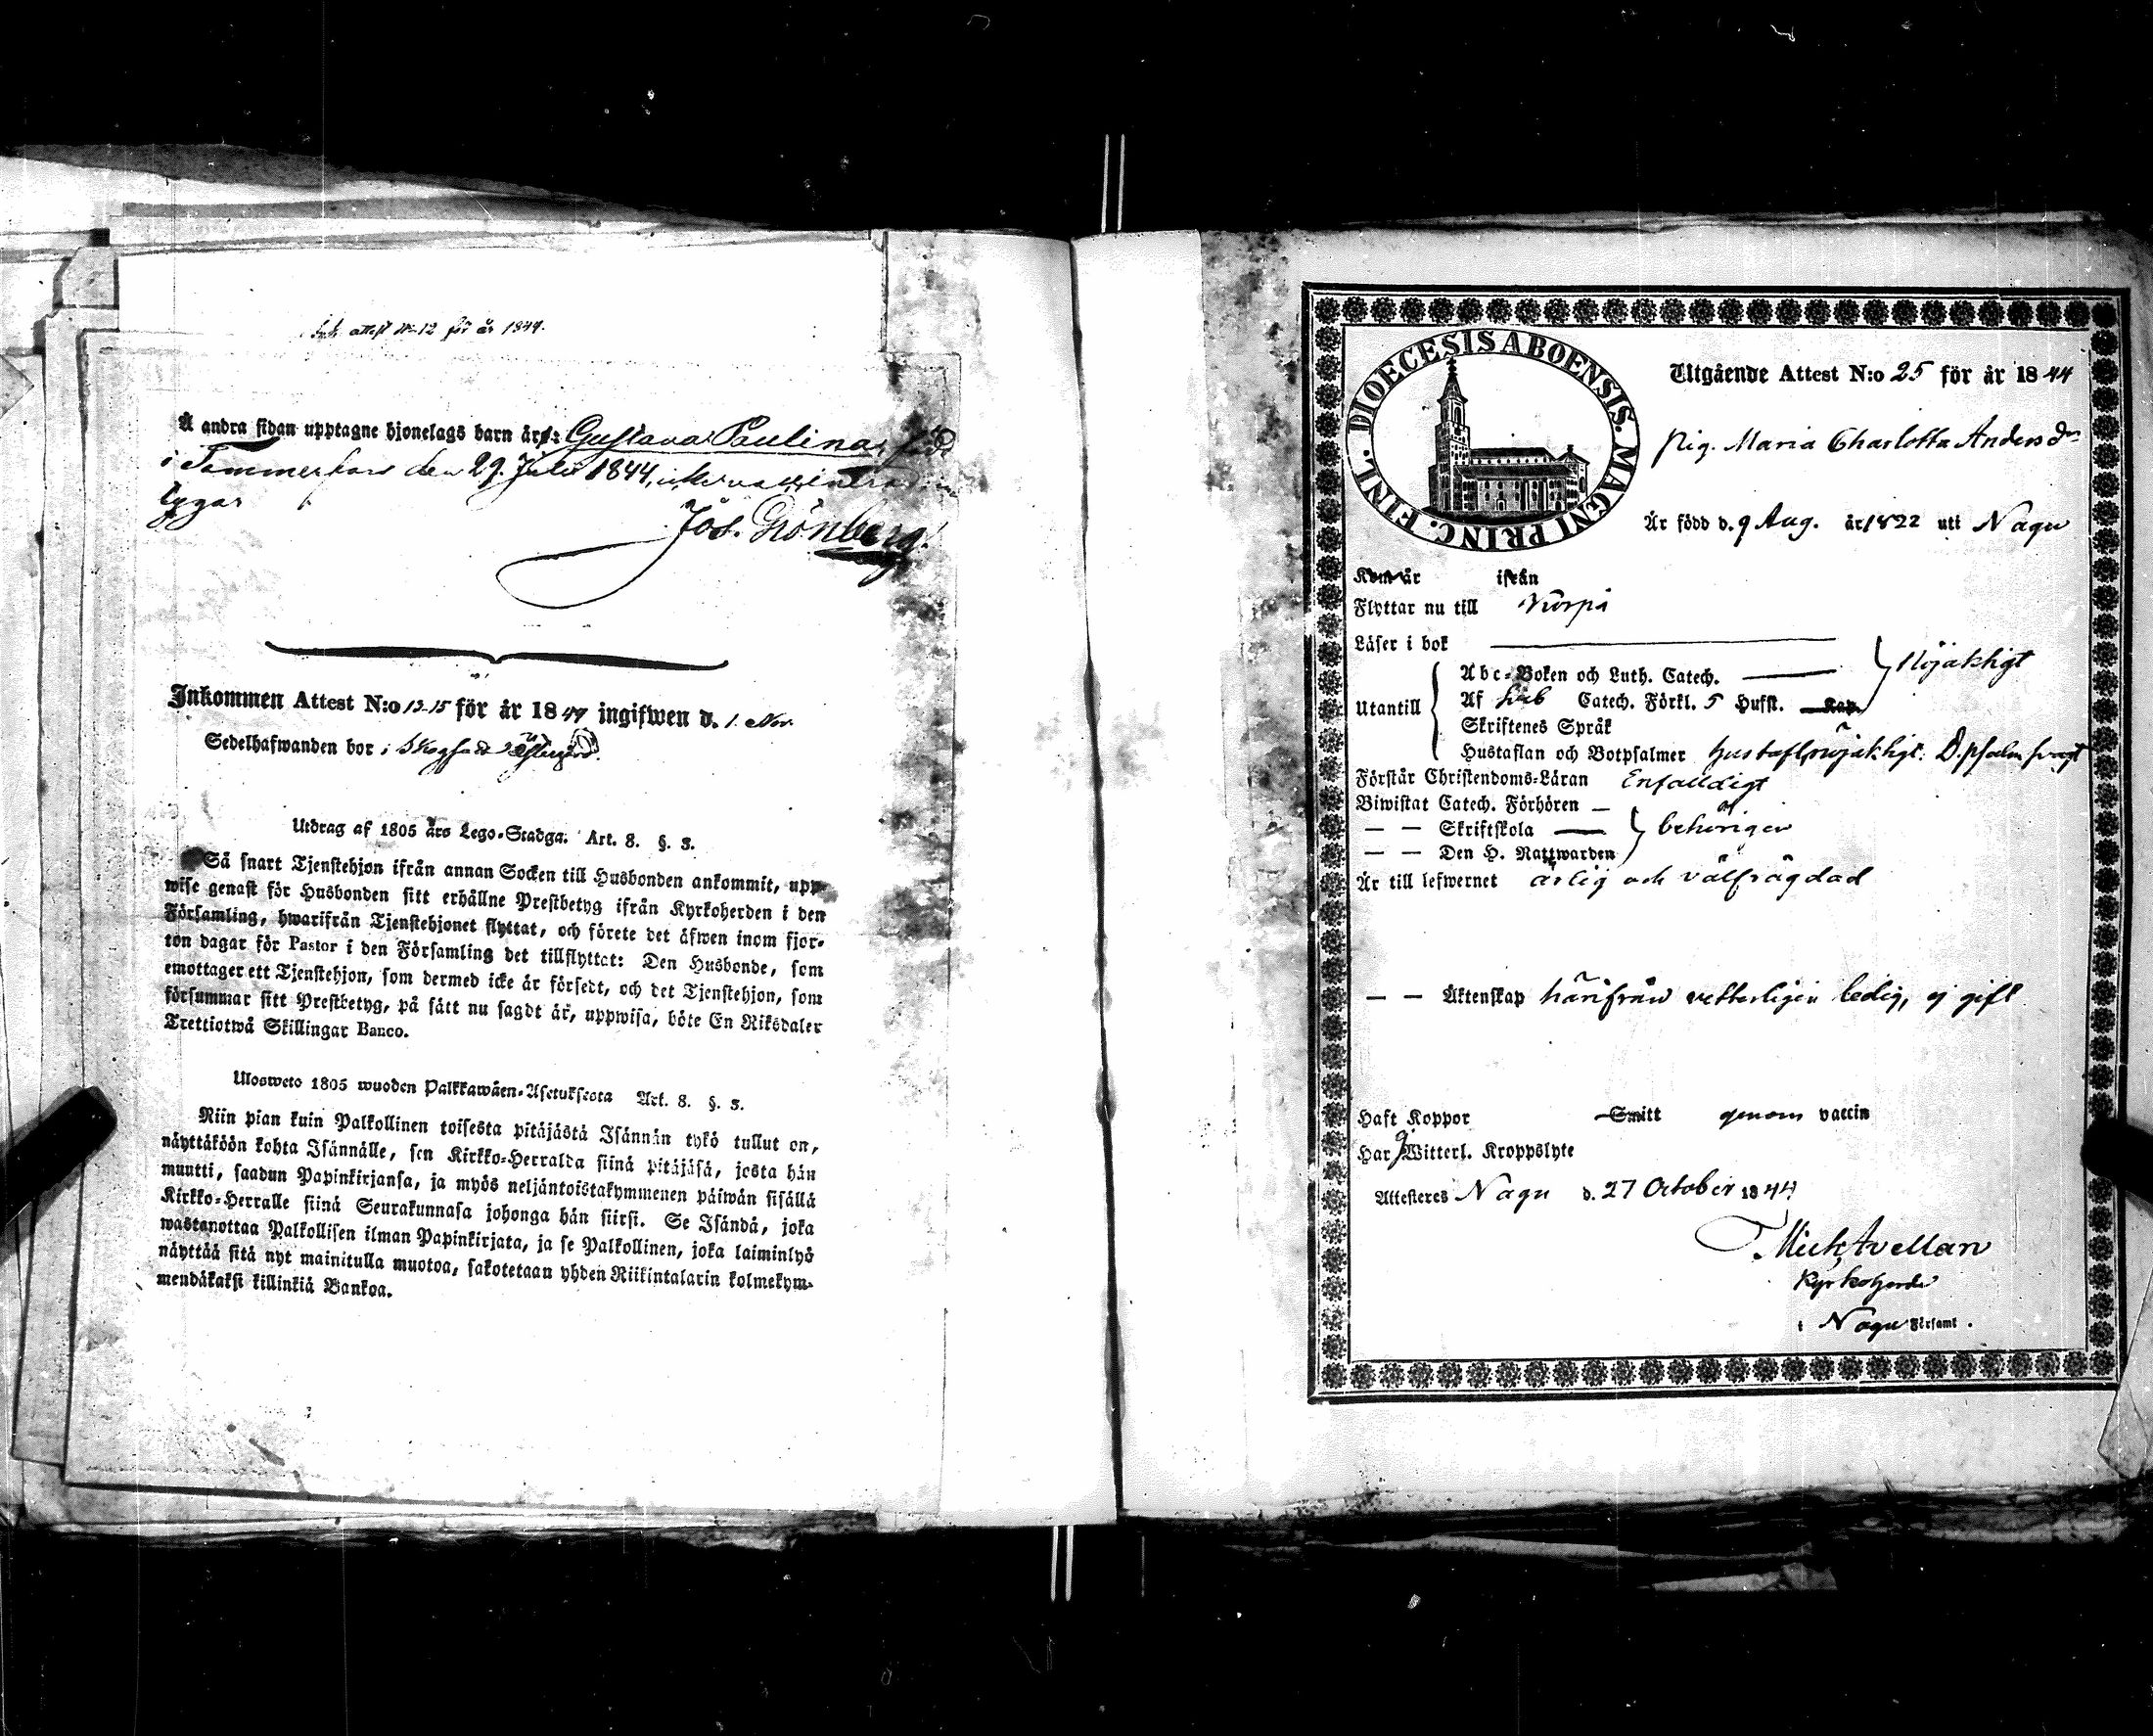 attest No 12 för år 1844.
Å andra sidan upptagne hjonelags barn är: Gustava Paulina, född
i Tammerfors den 29. Julii 1844,
lyggas
Jos. Grönberg.
Inkommen Attest N:o 13-15 för år 1844 ingifwen d. 1. Nov.
Sedelhafwanden bor i
Utdrag af 1805 års Lego-Stadga. Art. 8. §. 3.
Så snart Tjenstehjon ifrån annan Socken till Husbonden ankommit, upp-
wise genast för Husbonden sitt erhållne Prestbetyg ifrån Kyrkoherden i den
Församling, hwarifrån Tjenstehjonet flyttat, och förete det äfwen inom fjor-
ton dagar för Pastor i den Församling det tillflyttat: Den Husbonde, som
emottager ett Tjenstehjon, som dermed icke är försedt, och det Tjenstehjon, som
försummar sitt Prestbetyg, på sätt nu sagdt är, uppwisa, böte En Riksdaler
Trettiotwå Skillingar Banco.
Ulosweto 1805 wuoden Palkkawäen-Asetuksesta Art. 8. §. 3.
Niin pian kuin Palkollinen toisesta pitäjästä Isännän tykö tullut on,
näyttäköön kohta Isännälle, sen Kirkko-Herralda siinä pitäjäsä, josta hän
muutti, saadun Papinkirjansa, ja myös neljäntoistakymmenen päiwän sisällä
Kirkko-Herralle siinä Seurakunnasa johonga hän siirsi. Se Isändä, joka
wastanottaa Palkollisen ilman Papinkirjata, ja se Palkollinen, joka laiminlyö
näyttää sitä nyt mainitulla muotoa, sakotetaan yhden Riikintalarin kolmekym-
mendäkaksi killinkiä Bankoa.
DIOECESIS ABOENSIS. MAGNI PRINC. FINL.
Utgående Attest N:o 25 för år 1844
Pig. Maria Charlotta Andersdr
Är född d. 9 Aug. år 1822 uti Nagu
Kom år ifrån
Flyttar nu till Korpo
Läser i bok
Abc-Boken och Luth. Catech. Nöjaktigt
Utantill Af Catech. Förkl. 5 Hufst. Kap.
Skriftenes Språk
Hustaflan och Botpsalmer Hustafl. nöjaktigt. B.psalm. svagt
Förstår Christendoms-Läran Enfaldigt
Biwistat Catech. Förhören
— — Skriftskola behörigen
— — Den H. Nattwarden
Är till lefwernet ärlig och välfrägdad
— — Äktenskap härifrån vetterligen ledig, ej gift
Haft Koppor Smitt genom vaccin
Har ej Witterl. Kroppslyte
Attesteres Nagu d. 27 October 1844
Mich Avellan
Kyrkoherde
i Nagu Församl.